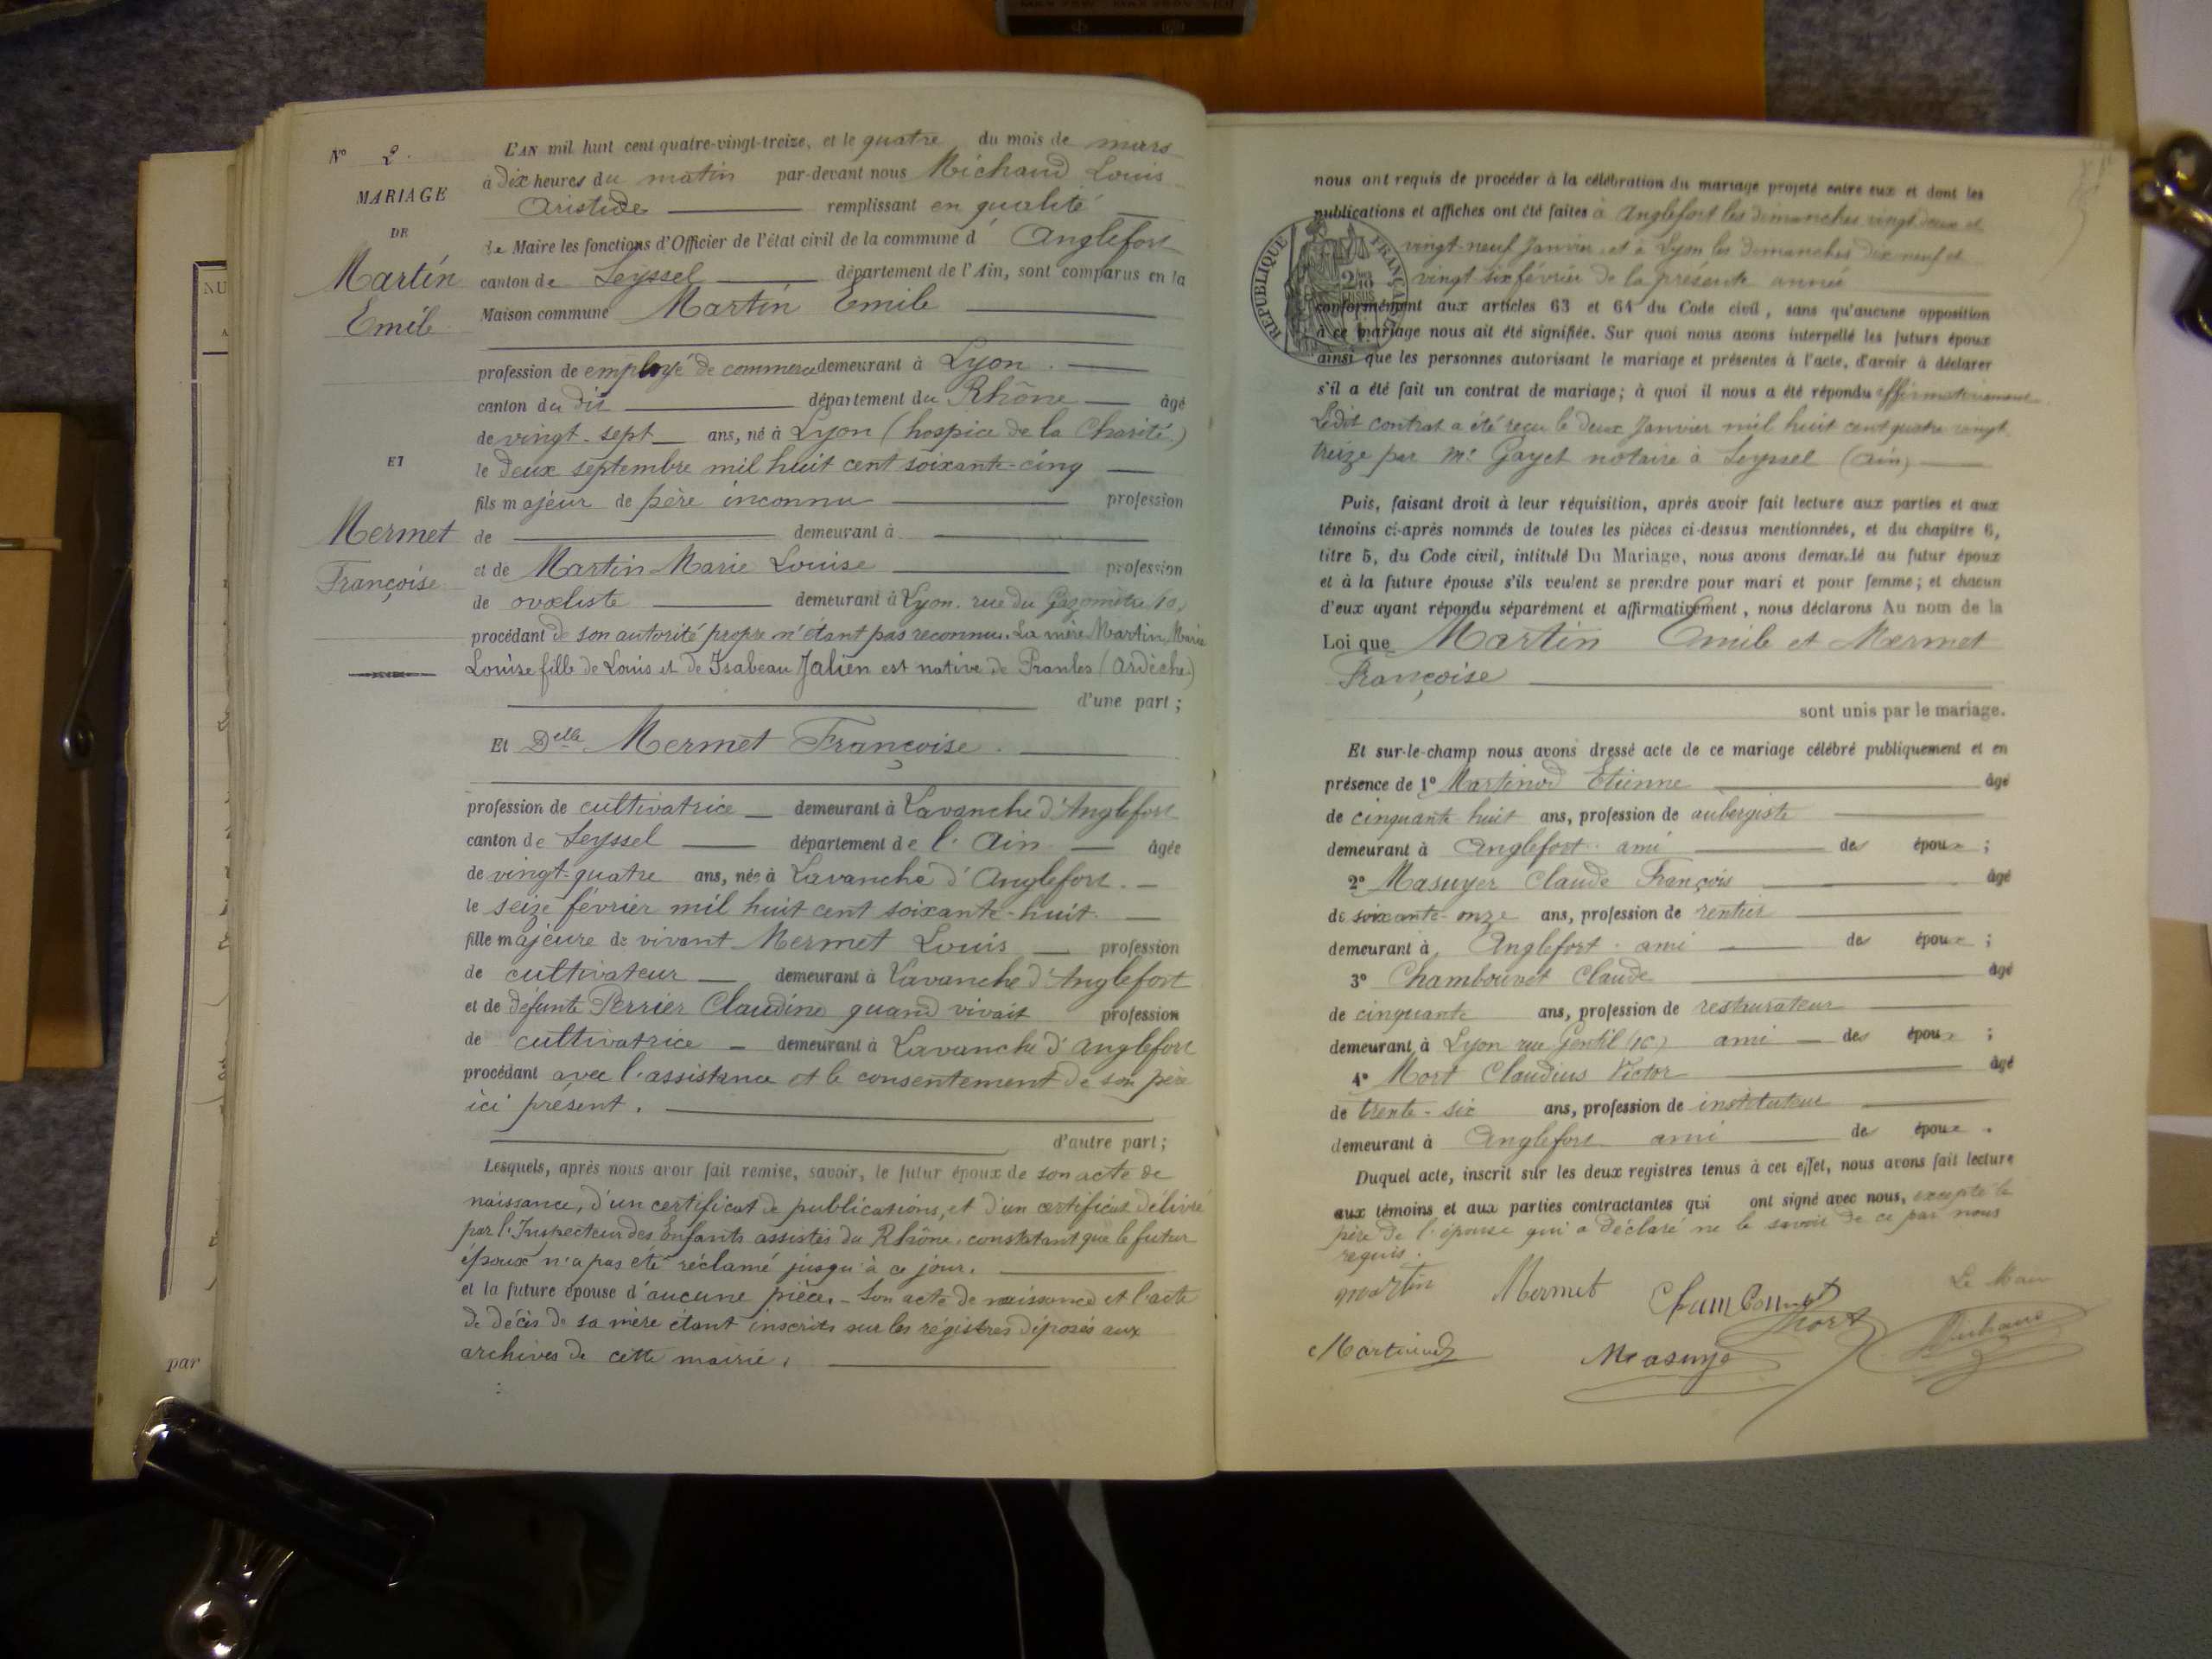 N° 2.
MARIAGE
DE
Martin
Emile
ET
Mermet
Françoise
L'AN mil huit cent quatre-vingt-treize, et le quatre du mois de mars
à dix heures du matin par-devant nous Michaud Louis
Aristide remplissant en qualité
de Maire les fonctions d'Officier de l'état civil de la commune d' Anglefort
canton de Seyssel département de l'Ain, sont comparus en la
Maison commune Martin Emile
profession de employé de commerce demeurant à Lyon.
canton du dit département du Rhône âgé
de vingt-sept ans, né à Lyon (hospice de la Charité)
le deux septembre mil huit cent soixante-cinq
fils majeur de père inconnu profession
de demeurant à
et de Martin Marie Louise profession
de ovaliste demeurant à Lyon. rue du Gazomètre 10,
procédant de son autorité propre n'étant pas reconnu. La mère Martin Marie
Louise fille de Louis et de Isabeau Jalien est native de Pranles (Ardèche)
d'une part ;
Et Delle Mermet Françoise.
profession de cultivatrice demeurant à Lavanche d'Anglefort
canton de Seyssel département de l'Ain âgée
de vingt-quatre ans, née à Lavanche d'Anglefort.
le seize février mil huit cent soixante-huit.
fille majeure de vivant Mermet Louis profession
de cultivateur demeurant à Lavanche d'Anglefort
et de défunte Perrier Claudine quand vivait profession
de cultivatrice demeurant à Lavanche d'Anglefort
procédant avec l'assistance et le consentement de son père
ici présent.
d'autre part ;
Lesquels, après nous avoir fait remise, savoir, le futur époux de son acte de
naissance, d'un certificat de publications, et d'un certificat délivré
par l'Inspecteur des Enfants assistés du Rhône. constatant que le futur
époux n'a pas été réclamé jusqu'à ce jour.
et la future épouse d'aucune pièce. - Son acte de naissance et l'acte
de décès de sa mère étant inscrits sur les régistres déposés aux
archives de cette mairie.
par
nous ont requis de procéder à la célébration du mariage projeté entre eux et dont les
publications et affiches ont été faites à Anglefort les dimanches vingt deux et
vingt-neuf Janvier, et à Lyon les dimanches dix neuf et
vingt six février de la présente année
RÉPUBLIQUE FRANÇAISE
conformément aux articles 63 et 64 du Code civil, sans qu'aucune opposition
à ce mariage nous ait été signifiée. Sur quoi nous avons interpellé les futurs époux
ainsi que les personnes autorisant le mariage et présentes à l'acte, d'avoir à déclarer
s'il a été fait un contrat de mariage ; à quoi il nous a été répondu affirmativement
Ledit contrat a été reçu le deux Janvier mil huit cent quatre vingt
treize par Me Gayet notaire à Seyssel (Ain)
Puis, faisant droit à leur réquisition, après avoir fait lecture aux parties et aux
témoins ci-après nommés de toutes les pièces ci-dessus mentionnées, et du chapitre 6,
titre 5, du Code civil, intitulé Du Mariage, nous avons demandé au futur époux
et à la future épouse s'ils veulent se prendre pour mari et pour femme ; et chacun
d'eux ayant répondu séparément et affirmativement, nous déclarons Au nom de la
Loi que Martin Emile et Mermet
Françoise
sont unis par le mariage.
Et sur-le-champ nous avons dressé acte de ce mariage célébré publiquement et en
présence de 1° Martinod Etienne âgé
de cinquante huit ans, profession de aubergiste
demeurant à Anglefort. ami des époux ;
2° Masuyer Claude François âgé
de soixante-onze ans, profession de rentier
demeurant à Anglefort. ami des époux ;
3° Chambouvet Claude âgé
de cinquante ans, profession de restaurateur
demeurant à Lyon rue Gentil (10) ami des époux ;
4° Mort Claudius Victor âgé
de trente-six ans, profession de instituteur
demeurant à Anglefort ami des époux.
Duquel acte, inscrit sur les deux registres tenus à cet effet, nous avons fait lecture
aux témoins et aux parties contractantes qui ont signé avec nous, excepté le
père de l'épouse qui a déclaré ne le savoir de ce par nous
requis.
Martin Mermet Chambouvet Le Maire
Mort Michaud
Martinod Masuye